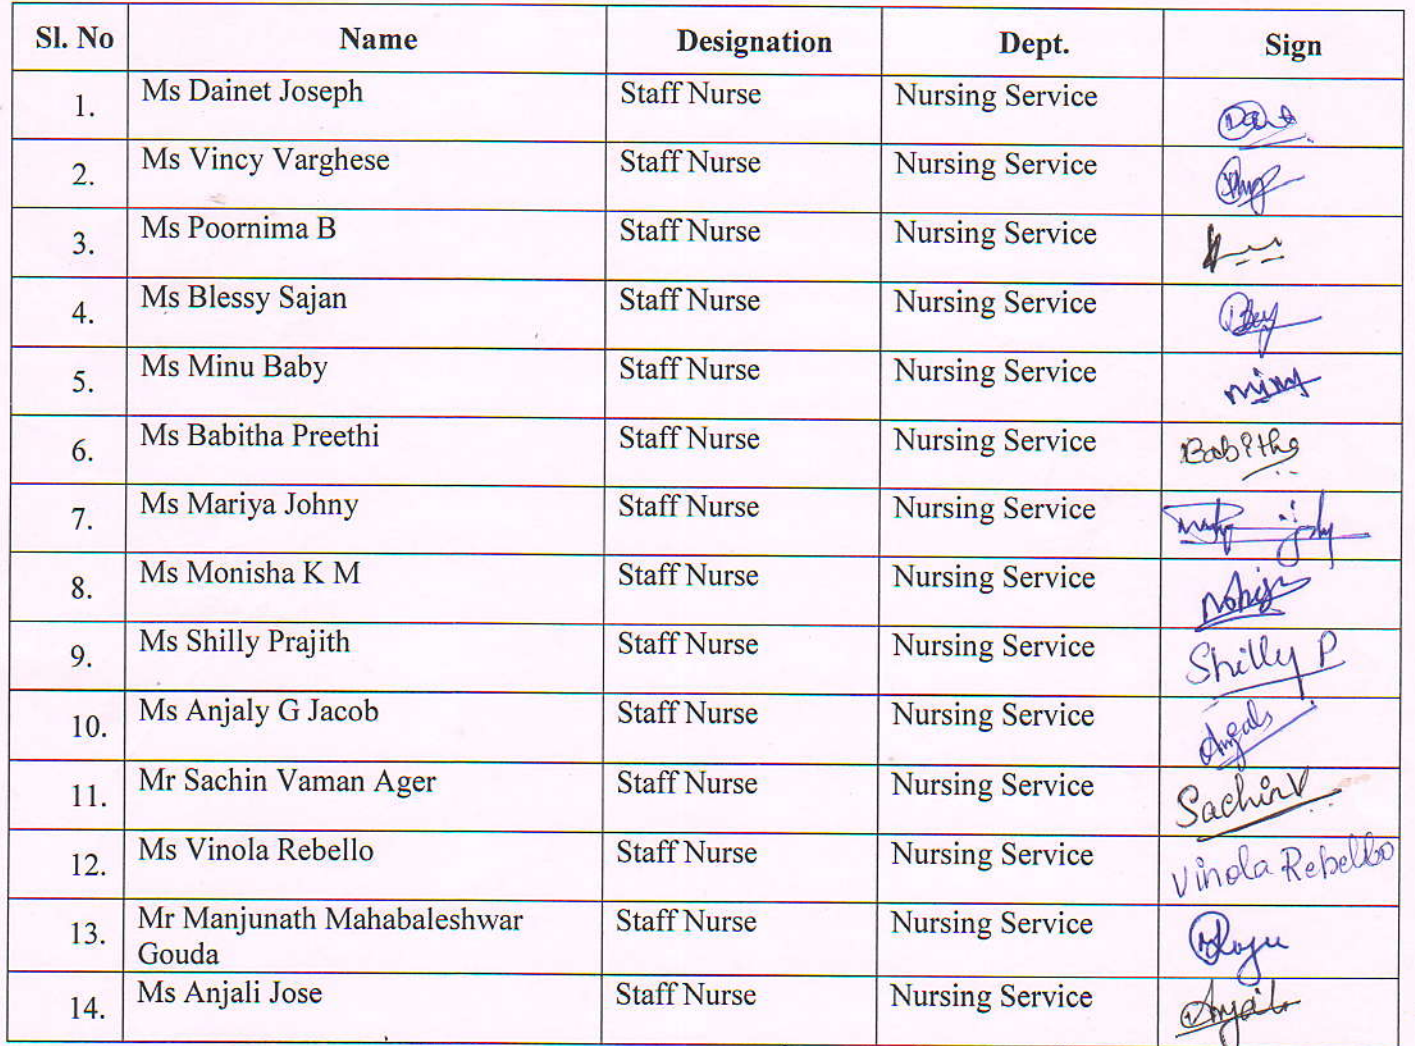 Sl. No Name Designation Dept. Sign
1. Ms Dainet Joseph Staff Nurse Nursing Service
2. Ms Vincy Varghese Staff Nurse Nursing Service
3. Ms Poornima B Staff Nurse Nursing Service
4. Ms Blessy Sajan Staff Nurse Nursing Service
5. Ms Minu Baby Staff Nurse Nursing Service
6. Ms Babitha Preethi Staff Nurse Nursing Service Babitha
7. Ms Mariya Johny Staff Nurse Nursing Service
8. Ms Monisha K M Staff Nurse Nursing Service
9. Ms Shilly Prajith Staff Nurse Nursing Service Shilly P
10. Ms Anjaly G Jacob Staff Nurse Nursing Service
11. Mr Sachin Vaman Ager Staff Nurse Nursing Service Sachin V
12. Ms Vinola Rebello Staff Nurse Nursing Service Vinola Rebello
13. Mr Manjunath Mahabaleshwar Staff Nurse Nursing Service
Gouda
14. Ms Anjali Jose Staff Nurse Nursing Service